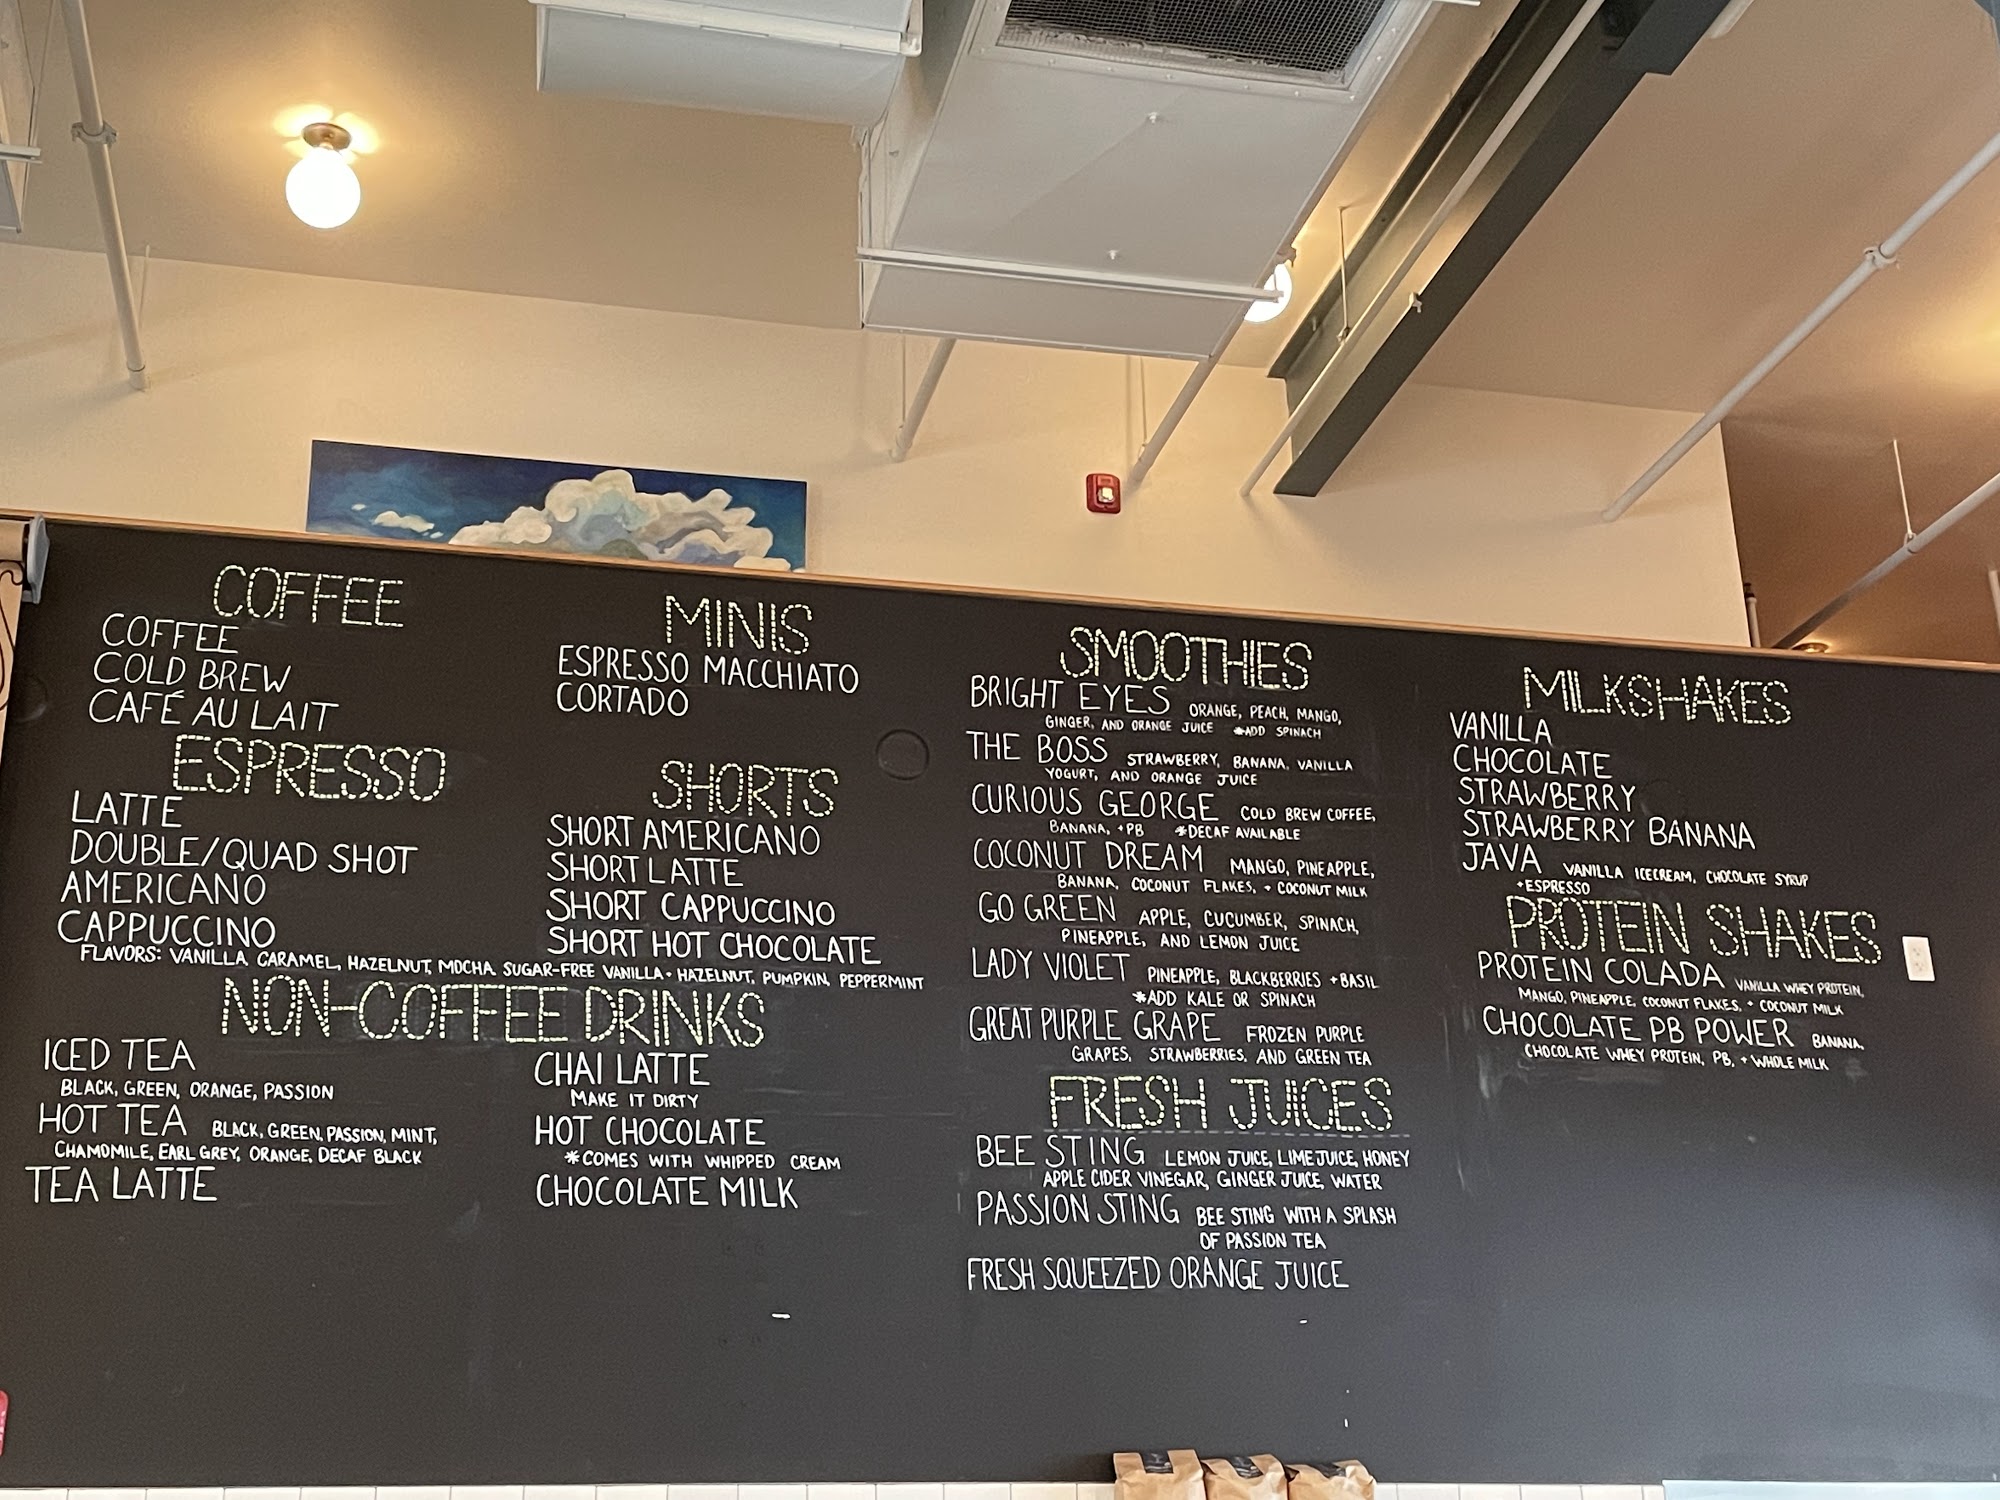 COFFEE
COFFEE
COLD BREW
CAFÉ AU LAIT
ESPRESSO
LATTE
DOUBLE/QUAD SHOT
AMERICANO
CAPPUCCINO
FLAVORS: VANILLA, CARAMEL, HAZELNUT, MOCHA, SUGAR-FREE VANILLA + HAZELNUT, PUMPKIN, PEPPERMINT
MINIS
ESPRESSO MACCHIATO
CORTADO
SHORTS
SHORT AMERICANO
SHORT LATTE
SHORT CAPPUCCINO
SHORT HOT CHOCOLATE
NON-COFFEE DRINKS
ICED TEA
BLACK, GREEN, ORANGE, PASSION
HOT TEA BLACK, GREEN, PASSION, MINT,
CHAMOMILE, EARL GREY, ORANGE, DECAF BLACK
TEA LATTE
CHAI LATTE
MAKE IT DIRTY
HOT CHOCOLATE
*COMES WITH WHIPPED CREAM
CHOCOLATE MILK
SMOOTHIES
BRIGHT EYES ORANGE, PEACH, MANGO,
GINGER, AND ORANGE JUICE *ADD SPINACH
THE BOSS STRAWBERRY, BANANA, VANILLA
YOGURT, AND ORANGE JUICE
CURIOUS GEORGE COLD BREW COFFEE,
BANANA, +PB *DECAF AVAILABLE
COCONUT DREAM MANGO, PINEAPPLE,
BANANA, COCONUT FLAKES, + COCONUT MILK
GO GREEN APPLE, CUCUMBER, SPINACH,
PINEAPPLE, AND LEMON JUICE
LADY VIOLET PINEAPPLE, BLACKBERRIES +BASIL
*ADD KALE OR SPINACH
GREAT PURPLE GRAPE FROZEN PURPLE
GRAPES, STRAWBERRIES, AND GREEN TEA
FRESH JUICES
BEE STING LEMON JUICE, LIME JUICE, HONEY
APPLE CIDER VINEGAR, GINGER JUICE, WATER
PASSION STING BEE STING WITH A SPLASH
OF PASSION TEA
FRESH SQUEEZED ORANGE JUICE
MILKSHAKES
VANILLA
CHOCOLATE
STRAWBERRY
STRAWBERRY BANANA
JAVA VANILLA ICECREAM, CHOCOLATE SYRUP
+ESPRESSO
PROTEIN SHAKES
PROTEIN COLADA VANILLA WHEY PROTEIN,
MANGO, PINEAPPLE, COCONUT FLAKES, + COCONUT MILK
CHOCOLATE PB POWER BANANA,
CHOCOLATE WHEY PROTEIN, PB, + WHOLE MILK